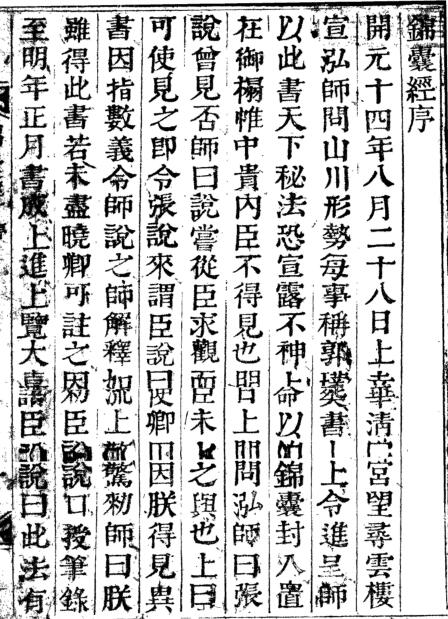 錦囊經序
開元十四年八月二十八日上幸清宮望尋雲樓
宣泓師問山川形勢每事稱郭璞書上令進呈師
以此書天下秘法恐宣露不神上命以錦囊封入置
在御榻帷中貴內臣不得見也上問泓師曰張
說曾見否師曰說嘗從臣求觀而臣未之與也上曰
可使見之即令張說來謂臣說曰使卿因朕得見異
書因指數義令師說之師解釋如流上驚勑師曰朕
雖得此書若未盡曉卿可註之因勑臣說口授筆錄
至明年正月書成上進上覽大喜臣說曰此法有